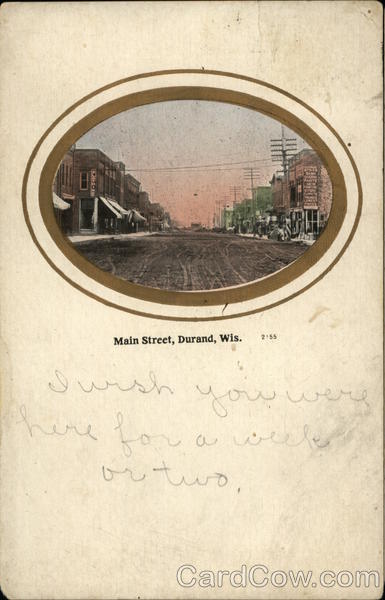 Main Street, Durand, Wis. 2155
I wish you were
here for a week
or two.
CardCow.com